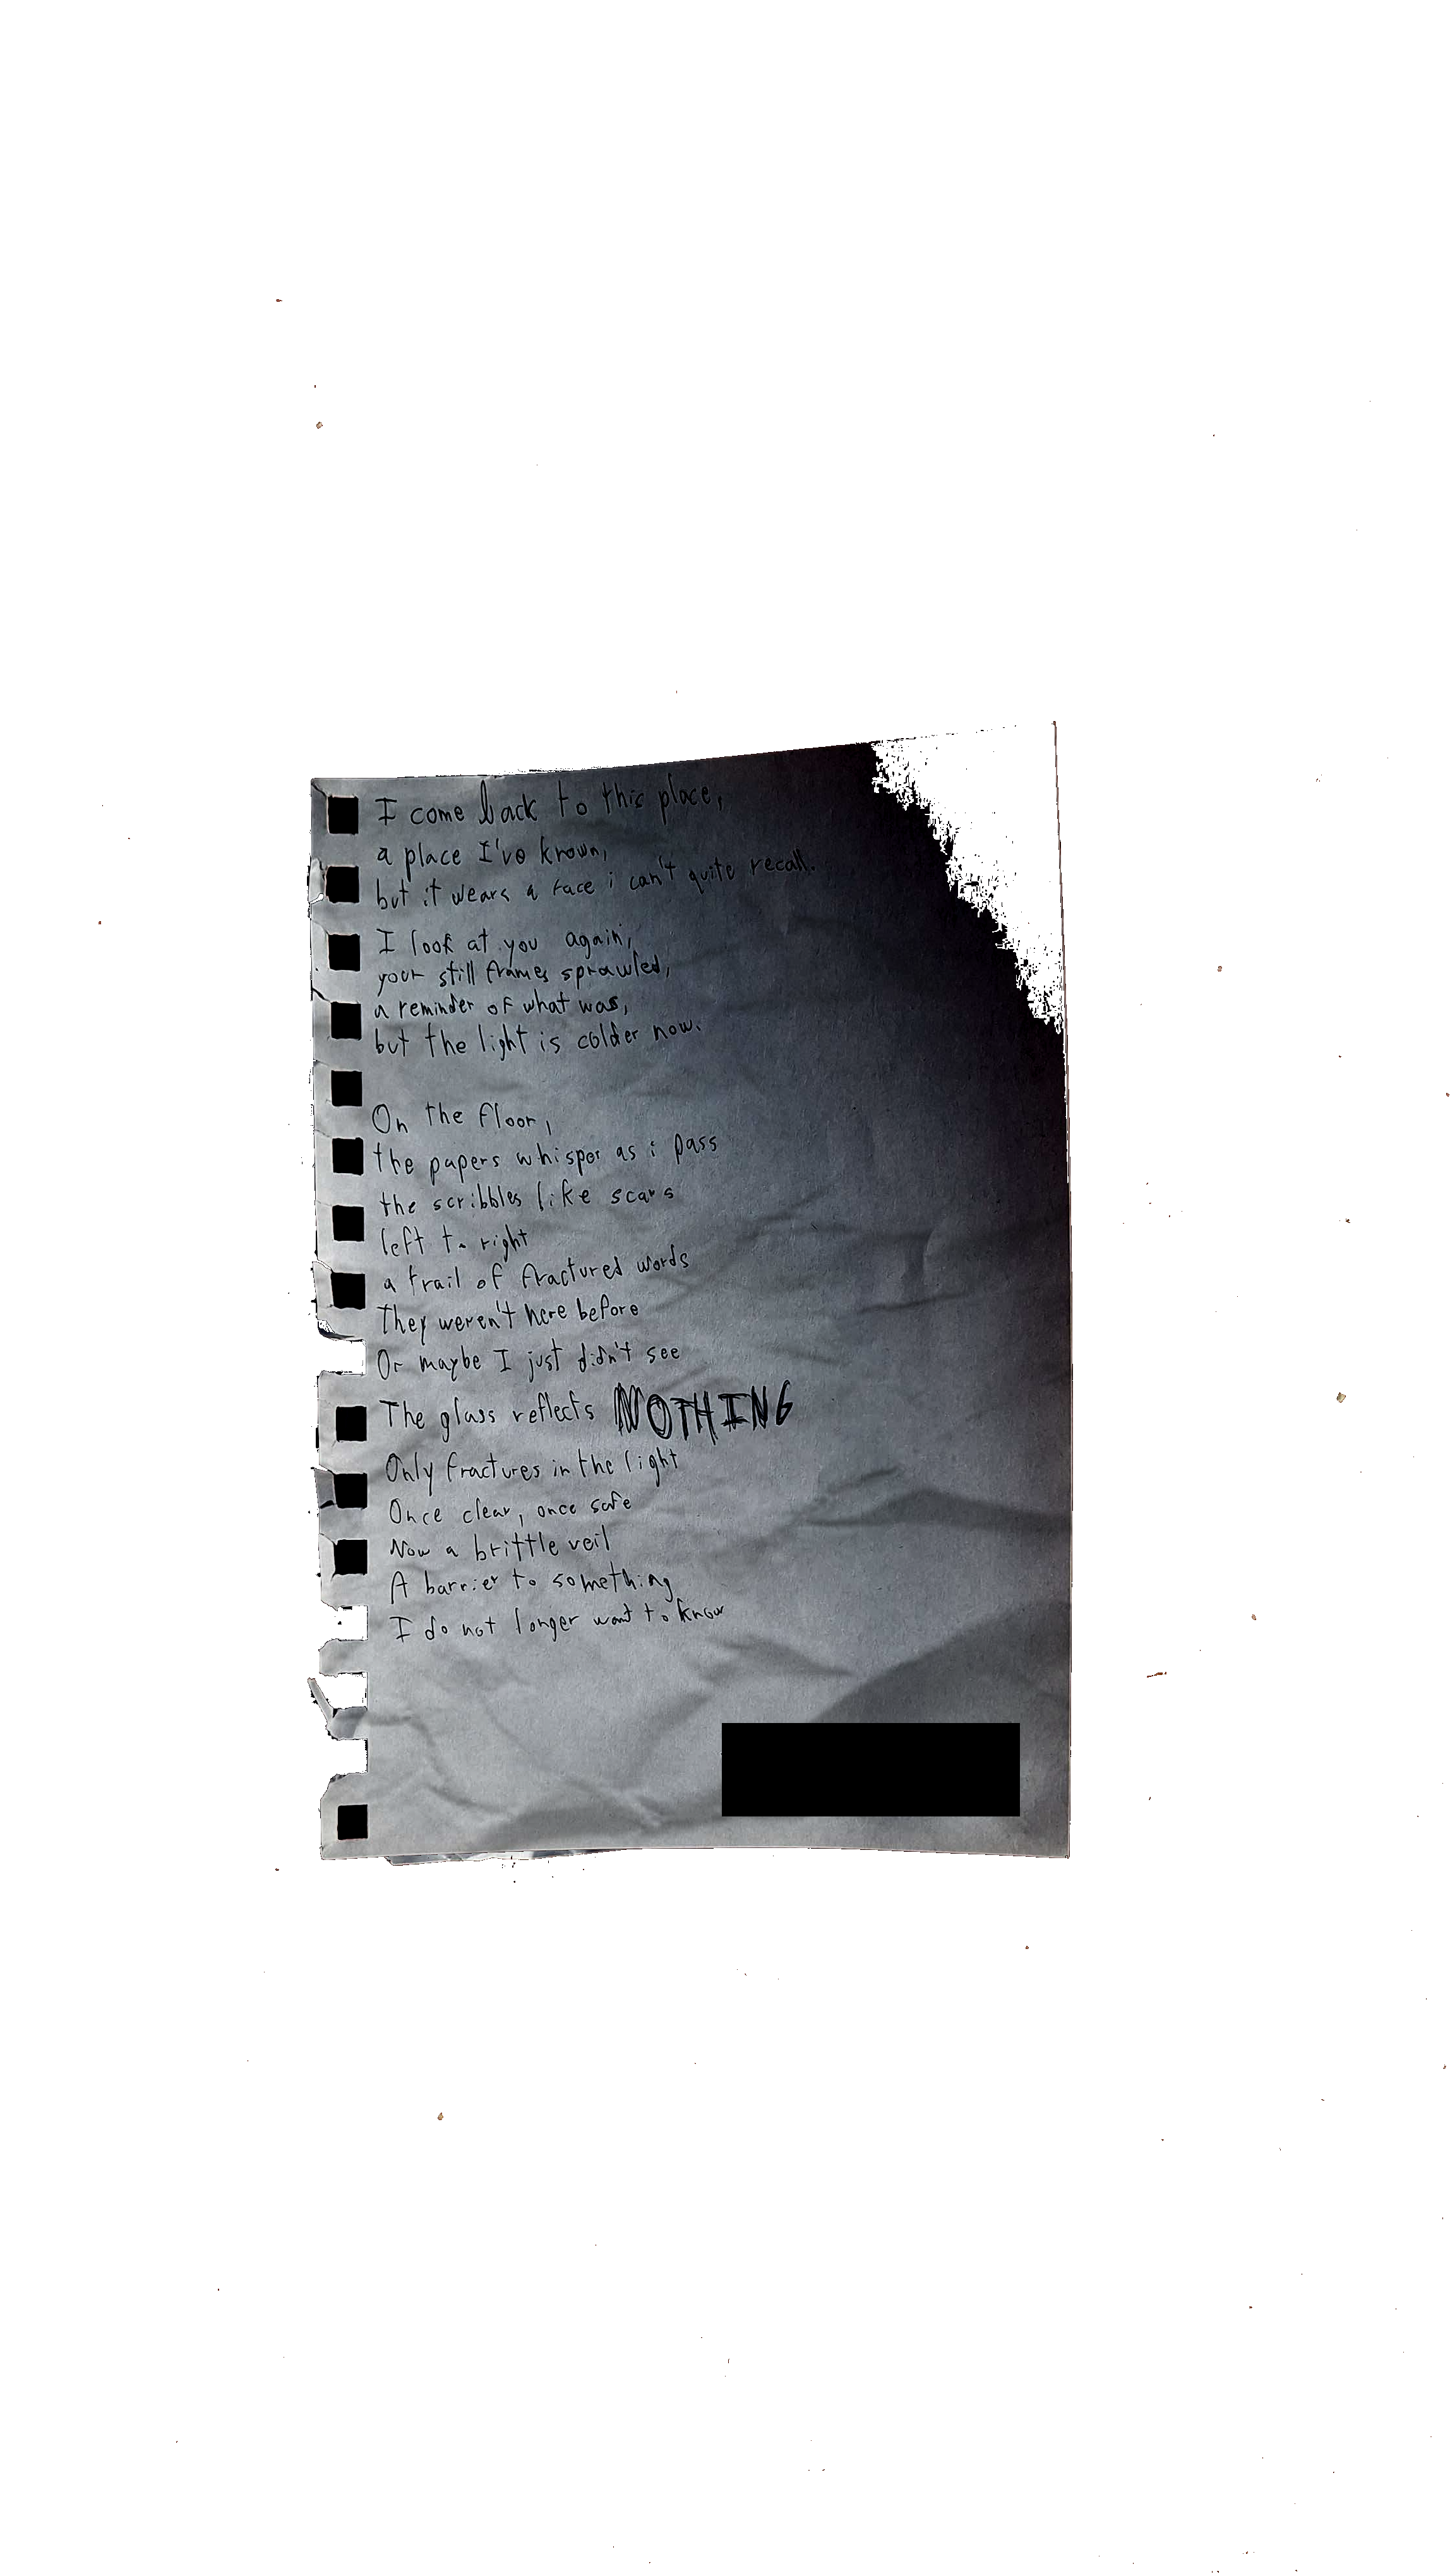 I come back to this place,
a place I've known,
but it wears a face i can't quite recall.
I look at you again,
your still frames sprawled,
a reminder of what was,
but the light is colder now.
On the floor,
the papers whisper as i pass
the scribbles like scars
left to right
a trail of fractured words
They weren't here before
Or maybe I just didn't see
The glass reflects NOTHING
Only fractures in the light
Once clear, once safe
Now a brittle veil
A barrier to something
I do not longer want to know